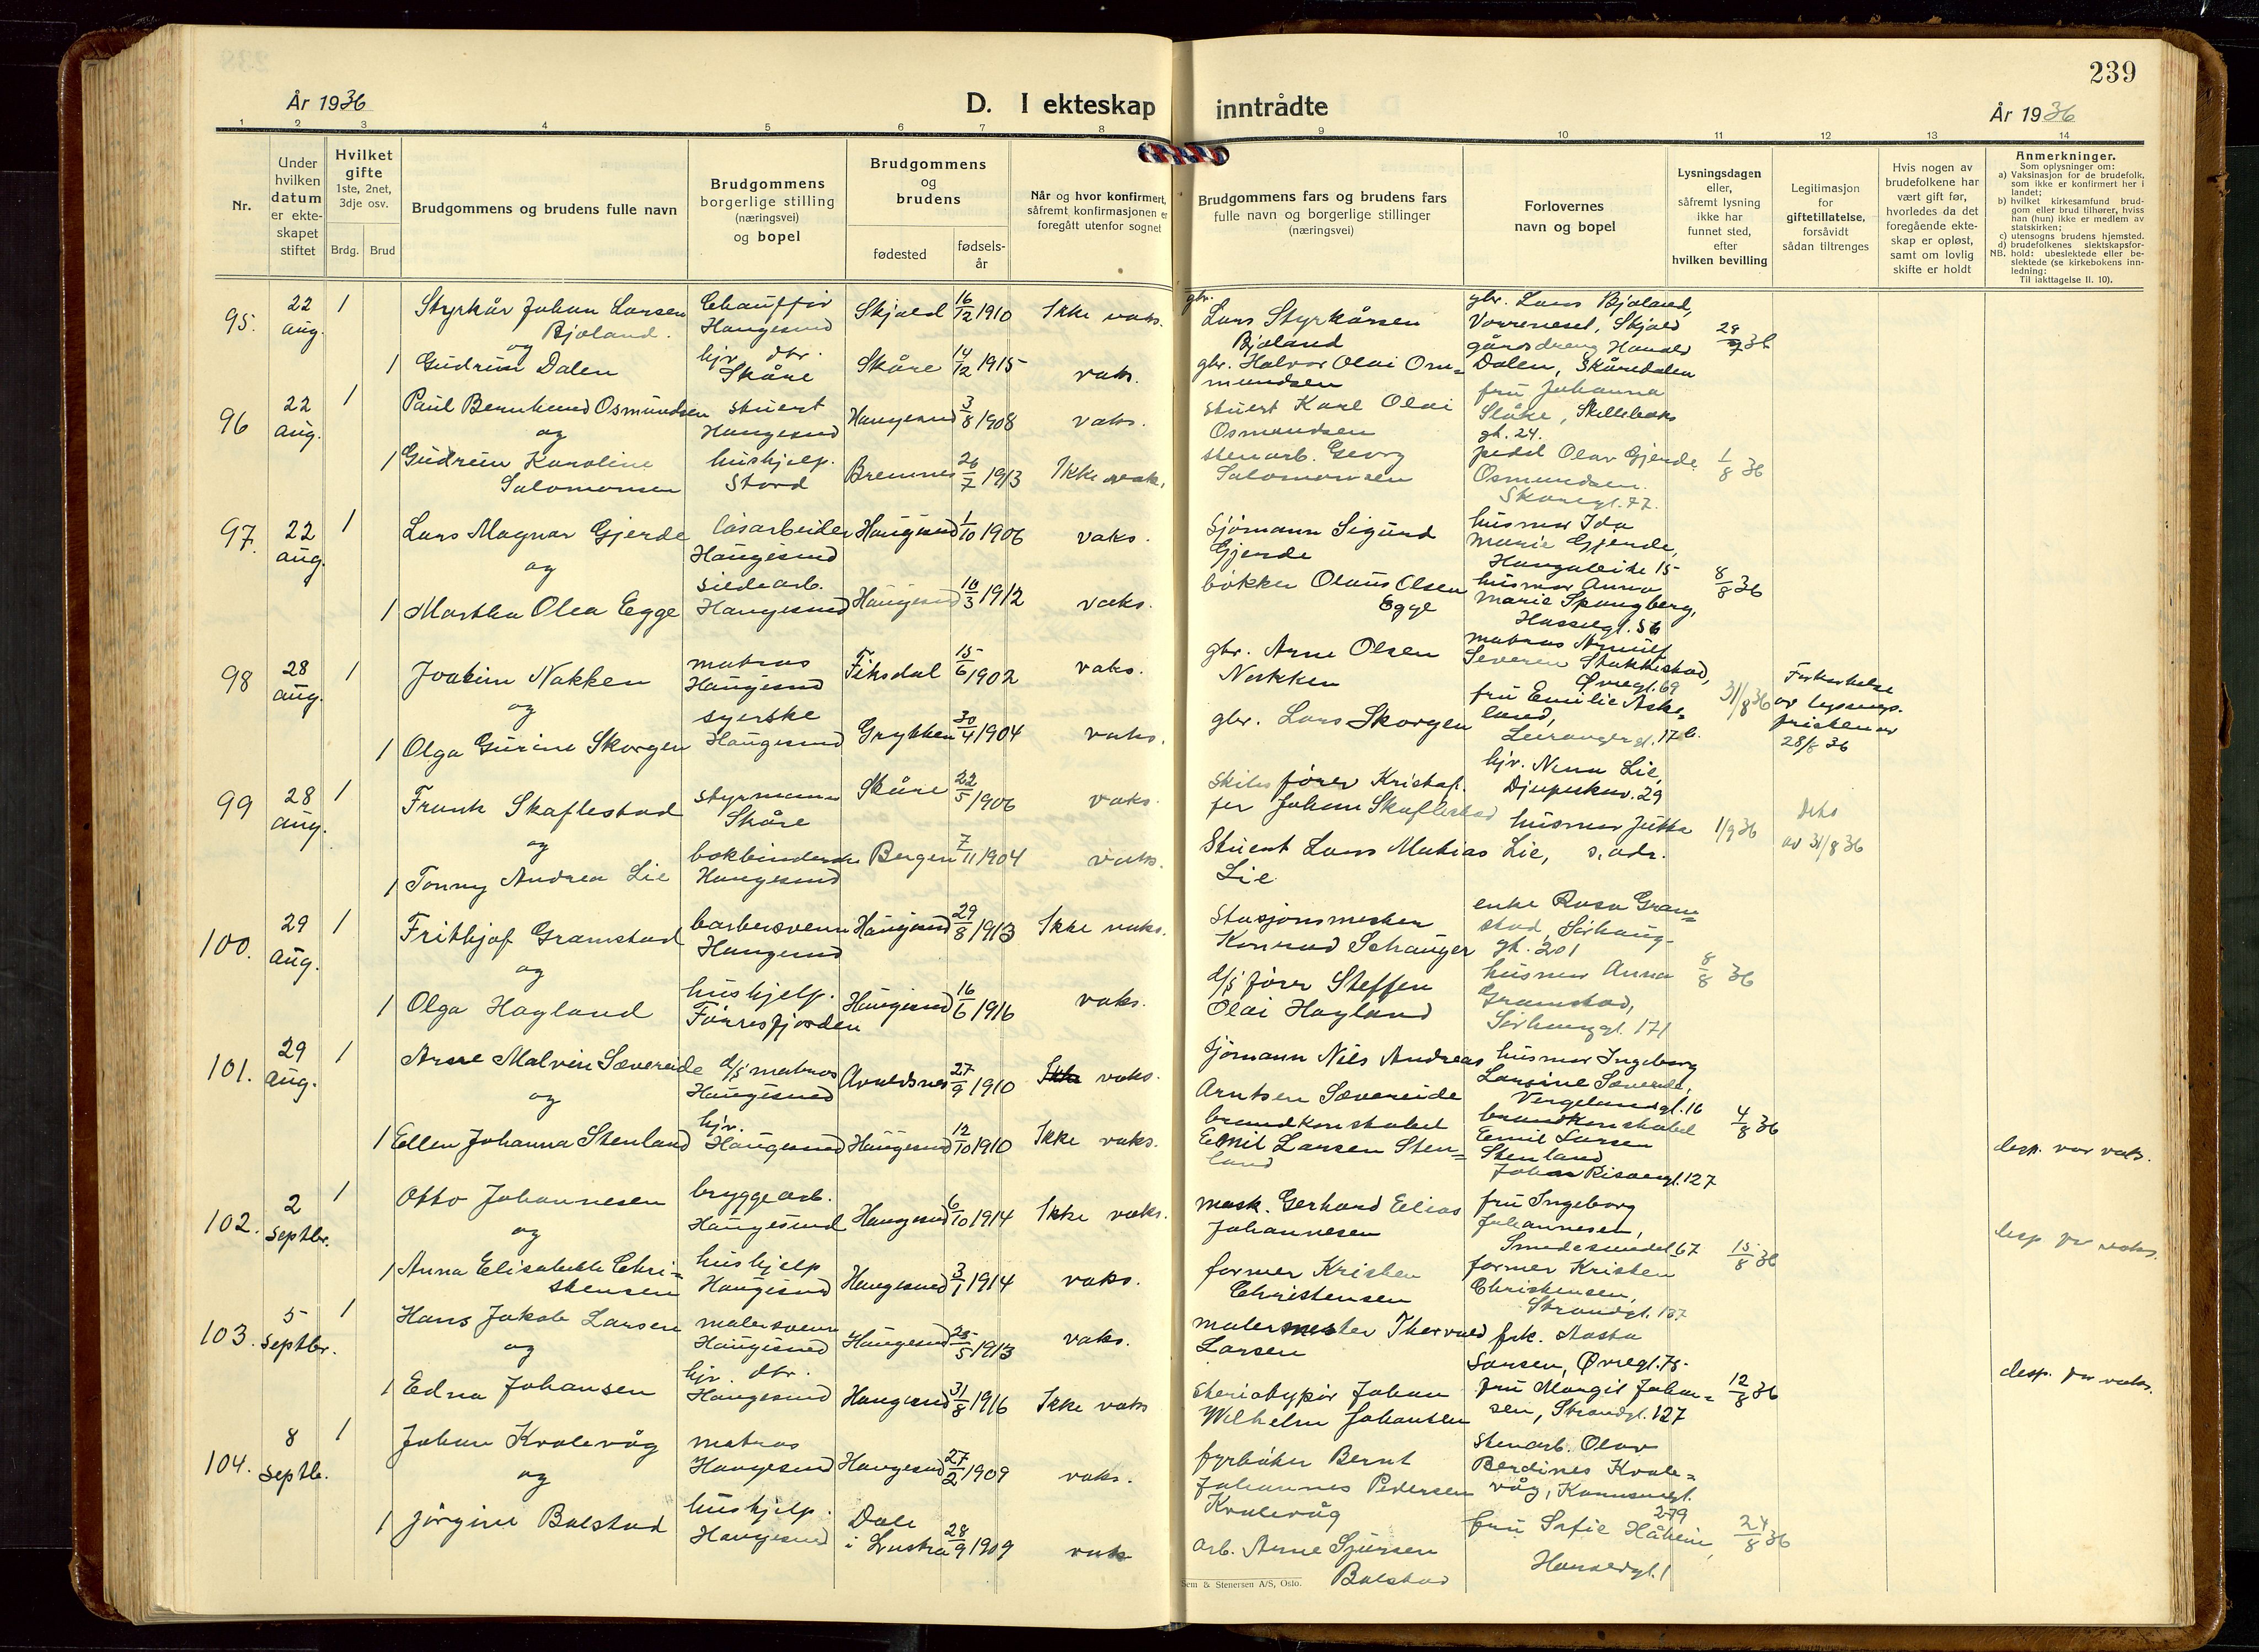 239
År 1936
D. I ekteskap inntrådte
År 1936
1 2 3 4 5 6 7 8 9 10 11 12 13 14
Nr.
Under hvilken datum er ekteskapet stiftet
Hvilket gifte 1ste, 2net, 3dje osv.
Brdg. Brud
Brudgommens og brudens fulle navn
Brudgommens borgerlige stilling (næringsvei) og bopel
Brudgommens og brudens
fødested
fødselsår
Når og hvor konfirmert, såfremt konfirmasjonen er foregått utenfor sognet
Brudgommens fars og brudens fars fulle navn og borgerlige stillinger (næringsvei)
Forlovernes navn og bopel
Lysningsdagen eller, såfremt lysning ikke har funnet sted, efter hvilken bevilling
Legitimasjon for giftetillatelse, forsåvidt sådan tiltrenges
Hvis nogen av brudefolkene har vært gift før, hvorledes da det foregående ekteskap er opløst, samt om lovlig skifte er holdt
Anmerkninger.
Som oplysninger om:
a) Vaksinasjon for de brudefolk, som ikke er konfirmert her i landet;
b) hvilket kirkesamfund brudgom eller brud tilhører, hviss han (hun) ikke er medlem av statskirken;
c) utensogns brudens hjemsted.
d) brudefolkenes slektskapsforhold: ubeslektede eller beslektede (se kirkebokens innledning:
NB.
Til iakttagelse II. 10).
95. 22 aug. 1 Styrkår Johan Larsen Bjoland. Chauffør Haugesund Skjold 16/12 1910 Ikke vaks. gbr. Lars Styrkårsen Bjoland gbr. Lars Bjoland, Skjold 29/7 36
og
1 Gudrun Dalen hjv. dtr. Skåre Skåre 14/12 1915 vaks. gbr. Halvor Olai Ommundsen gårdsdreng Harald Dalen, Skåredalen
96 22 aug. 1 Paul Bernhard Osmundsen stuert Haugesund Haugesund 3/8 1908 vaks. stuert Karl Olai Osmundsen fru Johanna gt. 24.
og
1 Gudrun Karoline Salomonsen hushjelp. Stord Bremnes 26/7 1913 Ikke vaks. stenarb. Georg Salomonsen Olav Gjerde Osmundsen. Skåregt. 77. 1/8 36
97. 22 aug. 1 Lars Magnar Gjerde løsarbeider Haugesund Haugesund 1/10 1906 vaks. sjømann Sigurd Gjerde husmor Ida Marie Gjerde, 15
og
1 Martha Olea Egge sildearb. Haugesund Haugesund 10/3 1912 vaks. bøkker Olaus Olsen Egge husmor Anna Marie Spangberg, Hasselgt. 56 8/8 36
98 28 aug. 1 Joakim Nakken matros Haugesund Fiksdal 15/6 1902 vaks. gbr. Arne Olsen Nakken matros Arnulf Severin Stakkestad, Øvregt. 69 31/8 36 Forkortelse av lysningsfristen av 28/8 36
og
1 Olga Gurine Skorgen syerske Haugesund Grytten 30/4 1904 vaks. gbr. Lars Skorgen fru Emilie Askeland, 17 b.
99 28 aug. 1 Frank Skaflestad styrmann Skåre Skåre 22/5 1906 vaks. skibsfører Kristoffer Johan Skaflestad hjv. Nina Lie, Djupeskar. 29
og
1 Tonny Andrea Lie bokbinderske Haugesund Bergen 7/11 1904 vaks. Stuert Lars Mathias Lie husmor Jutta Lie, s. adr. 1/9 36 dito av 31/8 36
100. 29 aug. 1 Frithjof Gramstad barbersvenn Haugesund Haugesund 29/8 1913 Ikke vaks. stasjonsmester Konrad Schanger enke Rasa Gramstad, Sørhauggt. 201
og
1 Olga Hagland hushjelp. Førresfjorden Haugesund 16/6 1916 vaks. d/s fører Steffen Olai Hagland husmor Anna Gramstad, Sørhauggt. 171 8/8 36
101. 29 aug. 1 Arne Malvin Sævereide d/s matros Haugesund Avaldsnes 27/9 1910 vaks. Sjømann Nils Andreas Arntsen Sævereide husmor Ingeborg Larsine Sævereide, Vergelandsgt. 16
og
1 Ellen Johanna Stenland hjv. Haugesund Haugesund 12/10 1910 Ikke vaks. brandkonstabel Emil Larsen Stenland brandkonstabel Emil Larsen Stenland Johan Risøengt. 127 4/8 36 desp. vor vaks.
102. 2 septbr. 1 Otto Johannesen bryggearb. Haugesund Haugesund 6/10 1914 Ikke vaks. mask. Gerhard Elias Johannesen fru Ingeborg Johannesen, Smedesundet 67
og
1 Anna Elisabeth Christensen hushjelp Haugesund Haugesund 3/1 1914 vaks. former Kristen Christensen former Kristen Christensen, Strandgt. 187 15/8 36 desp. for vaks.
103. 5 septbr. 1 Hans Jakob Larsen malersvenn Haugesund Haugesund 25/5 1913 vaks. malermester Thorvald Larsen frk. Aasta Larsen, Øvregt. 75
og
1 Edna Johansen hjv. dtr. Haugesund Haugesund 31/8 1916 Ikke vaks steriotypør Johan Wilhelm Johansen fru Margit Johansen, Strandgt. 127 12/8 36 desp. for vaks.
104. 8 septb. 1 Johan Kvalevåg matros Haugesund Haugesund 27/2 1909 vaks. fyrbøter Bernt Johannes Pedersen Kvalevåg stenarb. Olav Berdines Kvalevåg, Karmsundgt. 279
og
1 Jørgine Bolstad hushjelp. Haugesund Dale i Lustra 28/9 1909 vaks arb. Arne Sjursen Bolstad fru Sofie Håheim, Haraldsgt. 1 24/8 36
Sem & Stenersen A/S, Oslo.